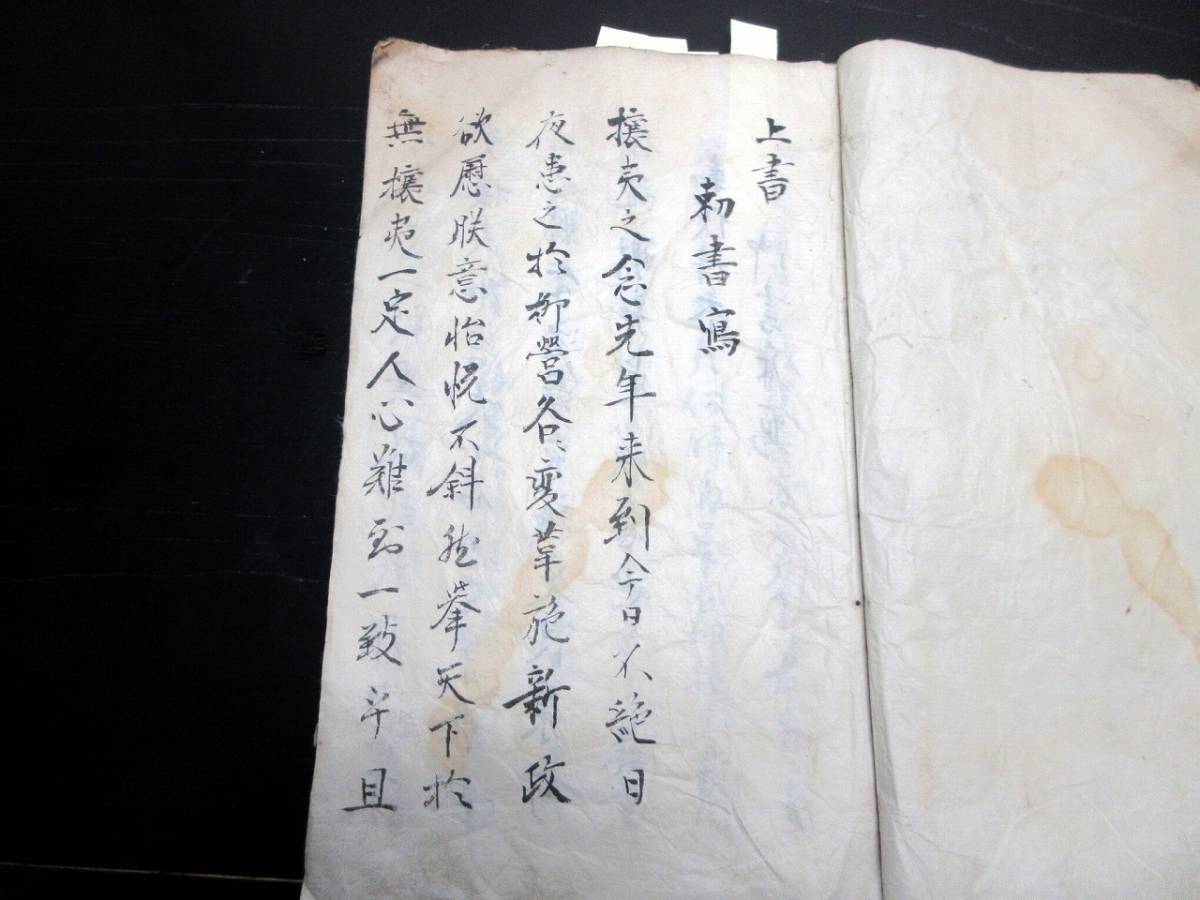 上書
勅書寫
攘夷之念先年来到今日不絶日
夜患之於柳営各〻変革施新政
欲慰朕意怡悦不斜然挙天下於
無攘夷一定人心難到一致乎且